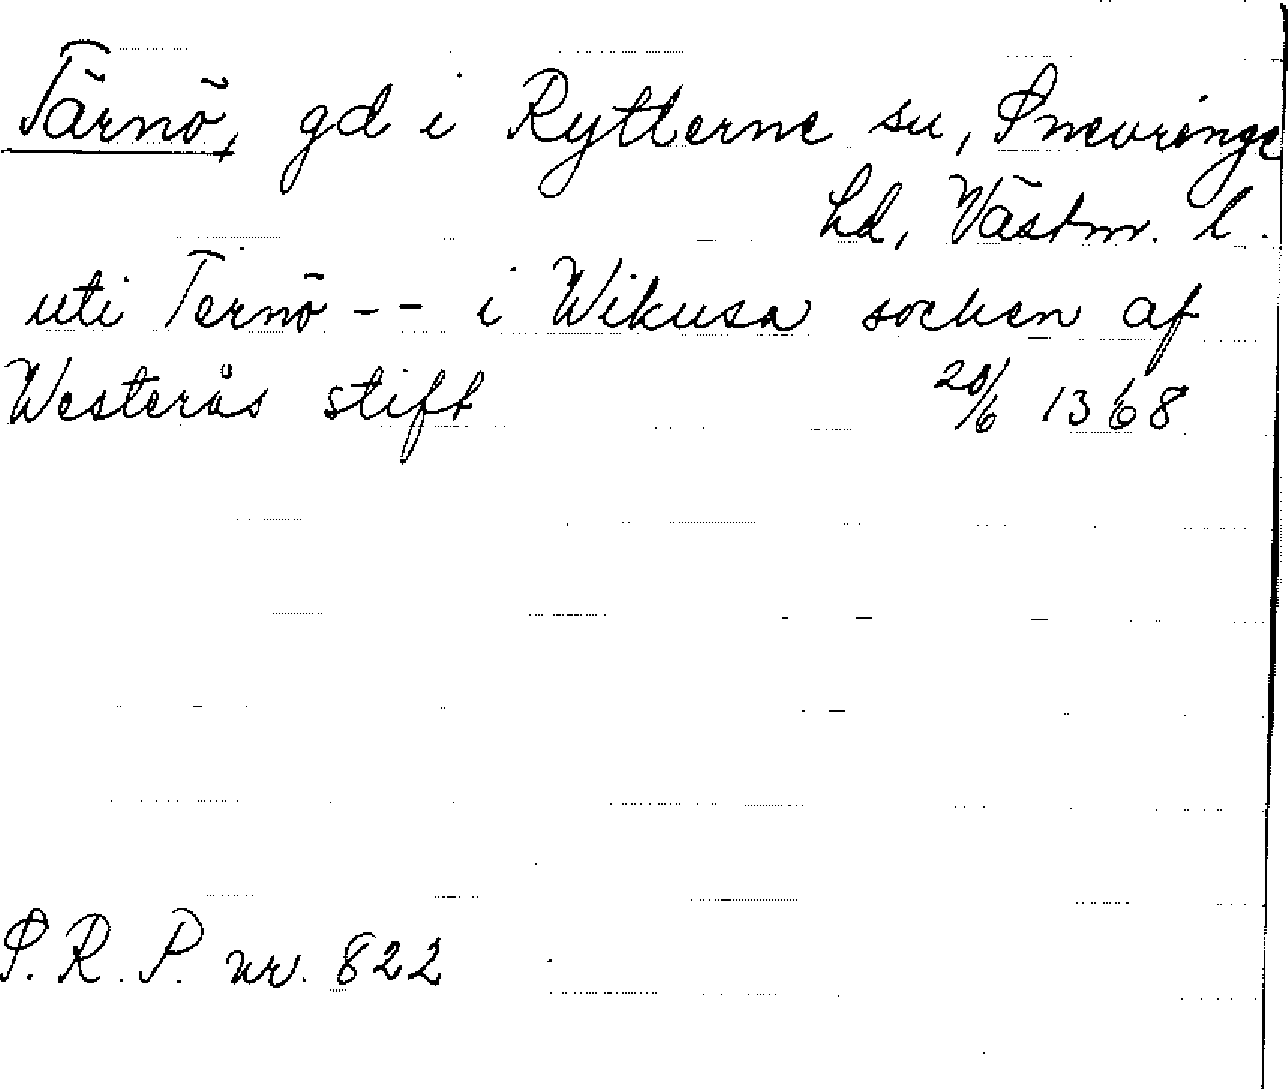 Tärnö, gd i Rytterne sn, Snevringe
hd, Västm. l.
uti Ternö -- i Wikusa socken af
Westerås stift 20/6 1368
S.R.P. nr. 822